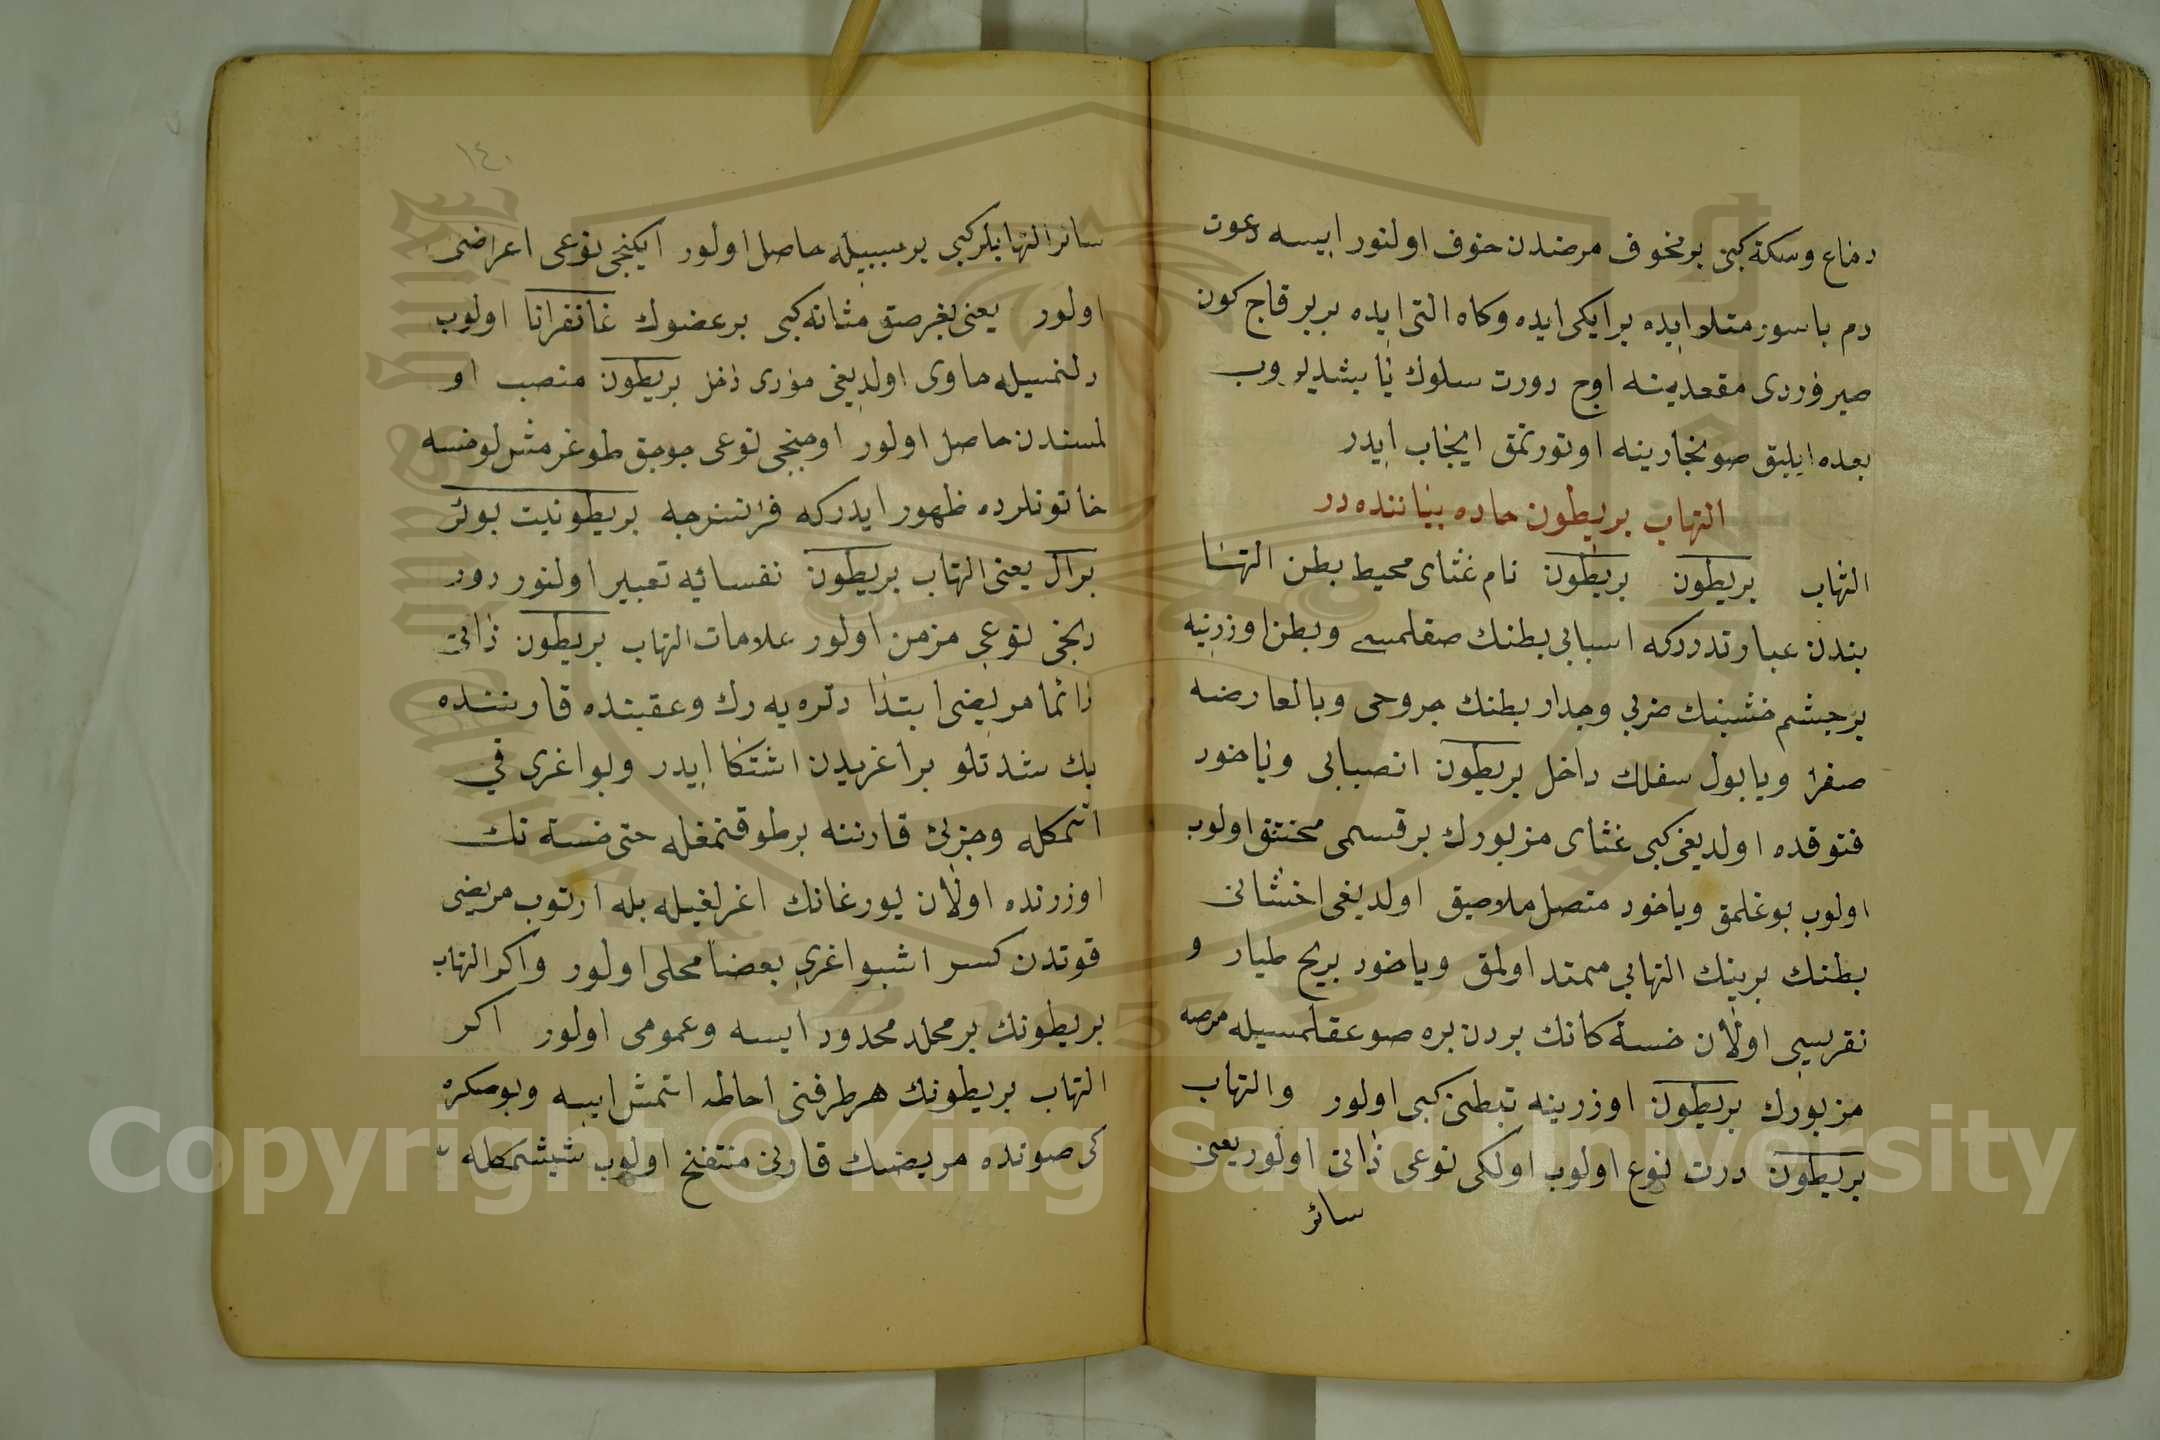 دماغ وسكته كبى بر مخوف مرضدن خوف اولنور ايسه دعوت
دم باسور متلا ايده بر ايكى ايده وكاه التى ايده برير قاج كون
صيرفوردى مقعدينه اوج دورت سلوك يا بشديروب
بعده ايليق صوبخارينه اوتورتمق ايجاب ايدر
التهاب بريطون حاده بياننده در
التهاب بريطون بريطون نام غشاى محيط بطن التها
بندن عبارتدركه اسبابى بطنك صقلمسى وبطن اوزرينه
برجشم خشبنك ضربى وجدار بطنك جروحى وبالعارضه
صفرا ويا بول سفلك داخل بريطون انصبابى وياخود
فتوقده اولديغى كبى غشاى مزبورك برقسمى مختنق اولوب
اولوب بوغلمق وياخود متصل ملاصيق اولديغى اخشانى
بطنك برينك التهابى ممتد اولمق وياخود بريح طيار و
نقريسى اولان خسته كانك بردن بره صوعقلمسيله مرصه
مزبورك بريطون اوزرينه تبطى كبى اولور والتهاب
بريطون درت نوع اولوب اولكى نوعى ذاتى اولور يعنى
سائر
١٤٠
سائر التهابلر كبى برسببيله حاصل اولور ايكنجى نوعى اعراضى
اولور يعنى بغرصق مثانه كبى برعضوك غانغرانا اولوب
دلنمسيله حاوى اولديغى مؤدى داخل بريطون منصب او
لمسندن حاصل اولور اوچنجى نوعى جوجق طوغرمش لوخسه
خاتونلرده ظهور ايدركه فرانسزجه بريطونيت بوئر
برال يعنى التهاب بريطون نفسائيه تعبير اولنور دور
دنجى نوعى مزمن اولور علامات التهاب بريطون ذاتى
دائما مريضى ابتدا دتره يه رك وعقبنده قارننده
بك شدتلو بر اغريدن اشتكا ايدر وبو اغرى قي
اتمكله وجزئى قارننه برطوقنمغله حتى خسته نك
اوزرنده اولان يورغانك اغرلغيله بله ارتوب مريضى
قوتدن كسر اشبو اغرى بعضا محلى اولور واكر التهاب
بريطونك برمحلد محدود ايسه وعمومى اولور اكر
التهاب بريطونك هر طرفنى احاطه اتمش ايسه وبوصكره
كى صونده مريضك قارنى منتفخ اولوب شيشمكله
Copyright © King Saud University
King Saud University
1957